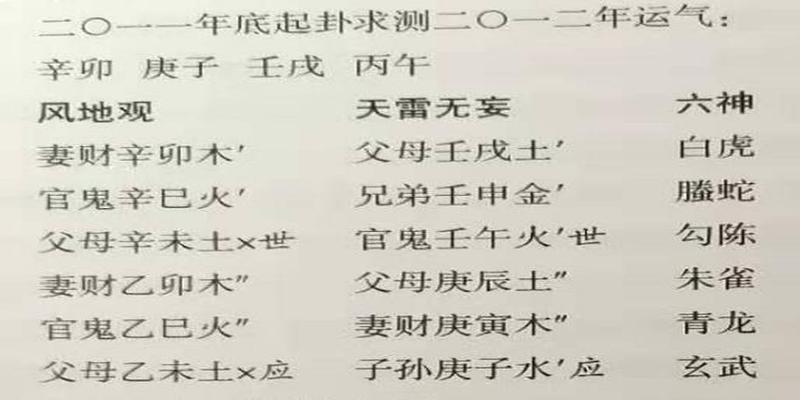 二〇一一年底起卦求测二〇一二年运气：
辛卯 庚子 壬戌 丙午
风地观 天雷无妄 六神
妻财辛卯木′ 父母壬戌土′ 白虎
官鬼辛巳火′ 兄弟壬申金′ 螣蛇
父母辛未土×世 官鬼壬午火′世 勾陈
妻财乙卯木″ 父母庚辰土″ 朱雀
官鬼乙巳火″ 妻财庚寅木″ 青龙
父母乙未土×应 子孙庚子水′应 玄武